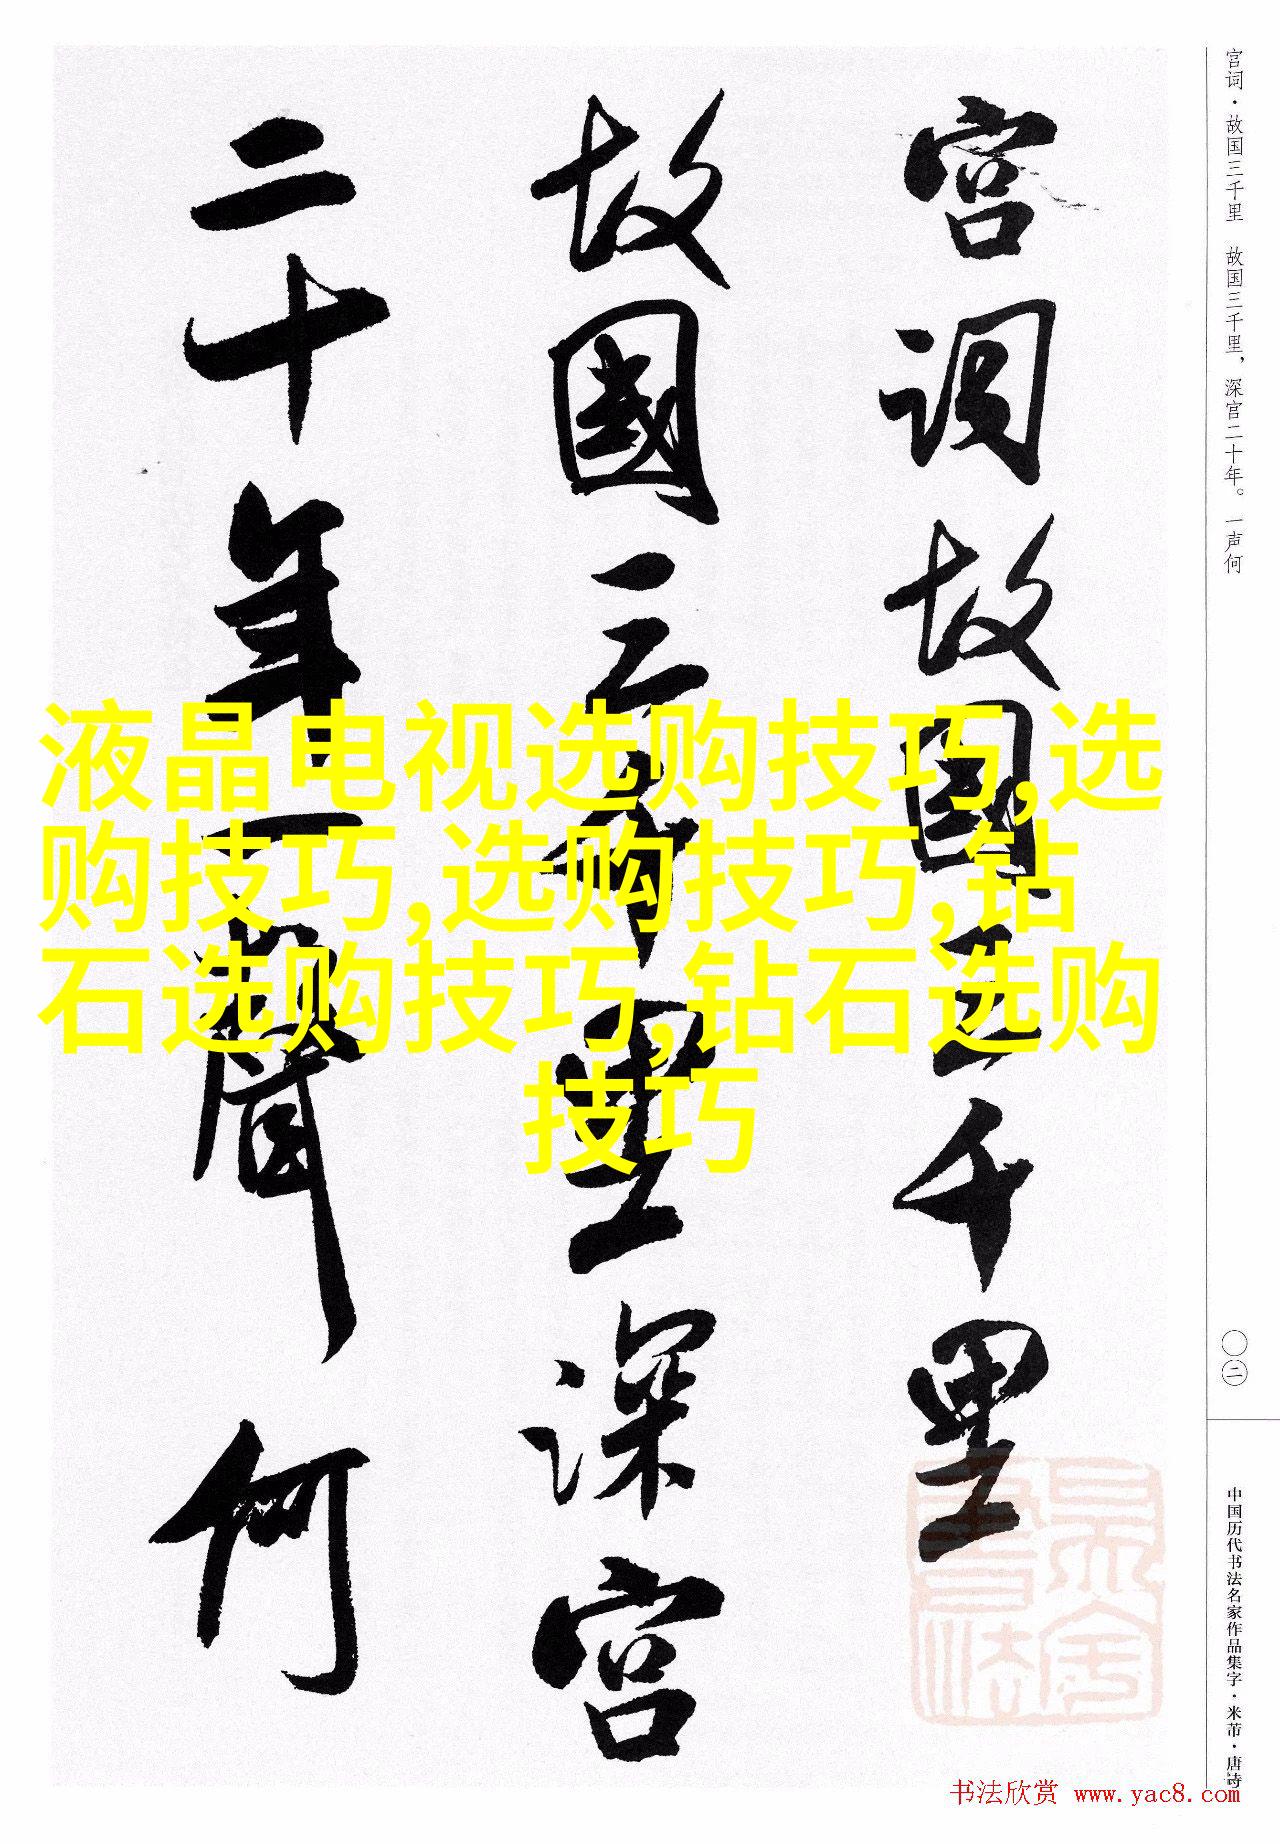 宫词·故国三千里 故国三千里，深宫二十年。一声何
宫词故國三千里
故國三千里深宫
二十年一聲何
液晶电视选购技巧,选
购技巧,选购技巧,钻
石选购技巧,钻石选购
技巧
〇二
中国历代书法名家作品集字·米芾·唐诗
书法欣赏 www.yac8.com